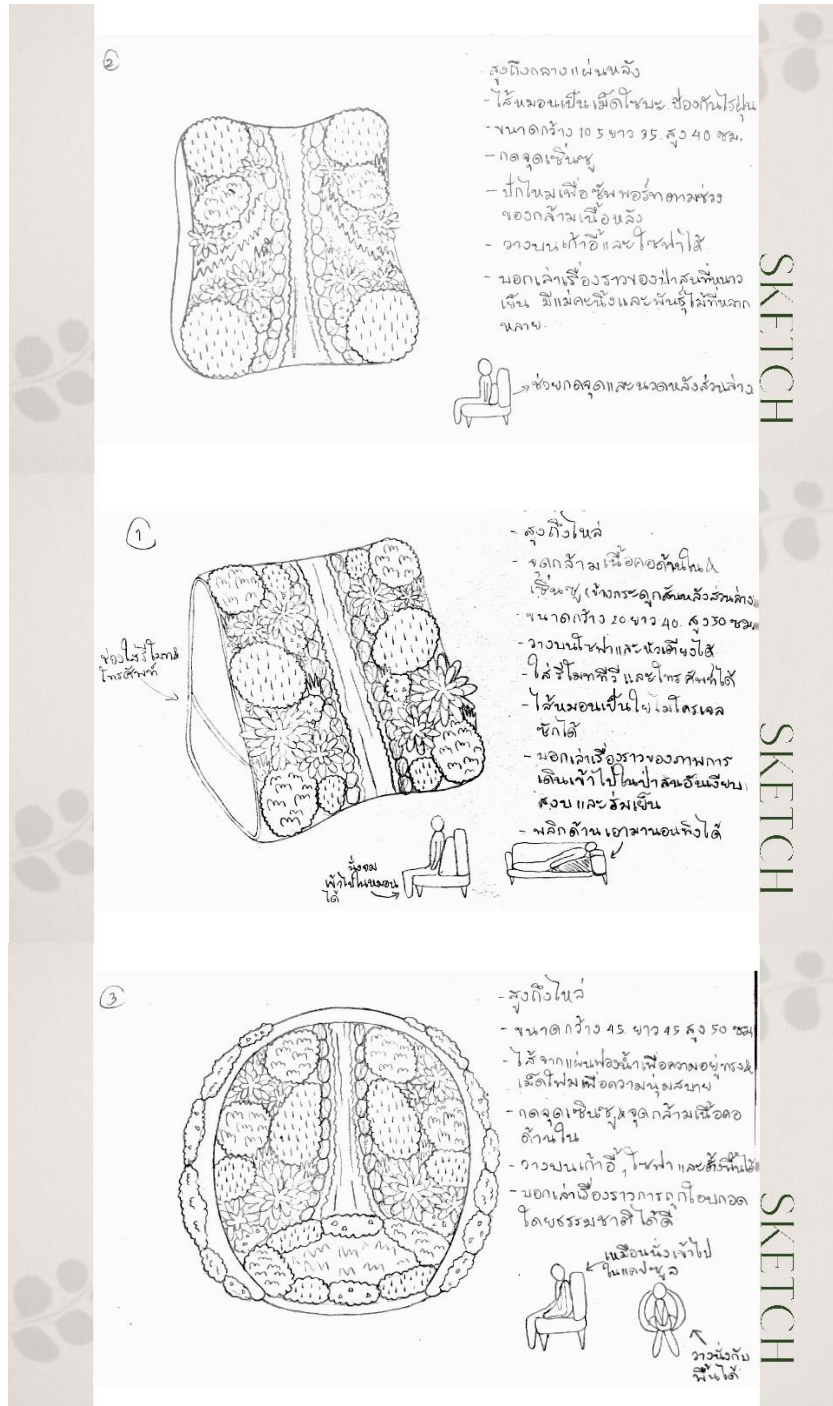 ②
สูงถึงกลางแผ่นหลัง
- ไส้หมอนเป็นเม็ดโซบะ ป้องกันไรฝุ่น
- ขนาดกว้าง 10.5 ยาว 35. สูง 40 ซม.
- กดจุดเซิ่นซู
- ปักไหมเพื่อซัพพอร์ทตามช่วง
ของกล้ามเนื้อหลัง
- วางบนเก้าอี้และโซฟาได้
- บอกเล่าเรื่องราวของป่าสนที่หนาว
เย็น มีแม่คะนิ้งและพันธุ์ไม้ที่หลาก
หลาย.
ช่วยกดจุดและนวดหลังส่วนล่าง
SKETCH
①
- สูงถึงไหล่
- จุดกล้ามเนื้อคอด้านใน &
เซิ่นซู (ข้างกระดูกสันหลังส่วนล่าง
- ขนาดกว้าง 20 ยาว 40. สูง 50 ซม.
- วางบนโซฟาและหัวเตียงได้
- ใส่รีโมททีวี และโทรศัพท์ได้
- ไส้หมอนเป็นใยไมโครเจล
ซักได้
- บอกเล่าเรื่องราวของภาพการ
เดินเข้าไปในป่าสนอันเงียบ
สงบ และร่มเย็น
- พลิกด้านเอามานอนพิงได้
ช่องใส่รีโมท&
โทรศัพท์
นั่งจม
เข้าไปในหมอน
ได้
SKETCH
③
- สูงถึงไหล่
- ขนาดกว้าง 45. ยาว 45. สูง 50 ซม
- ไส้จากแผ่นฟองน้ำเพื่อความอยู่ทรง&
เม็ดโฟมเพื่อความนุ่มสบาย
- กดจุดเซิ่นซู & จุดกล้ามเนื้อคอ
ด้านใน
- วางบนเก้าอี้, โซฟา และตั้งพื้นได้
- บอกเล่าเรื่องราวการถูกโอบกอด
โดยธรรมชาติได้ดี
เหมือนนั่งเข้าไป
ในแคปซูล
วางนั่งกับ
พื้นได้
SKETCH